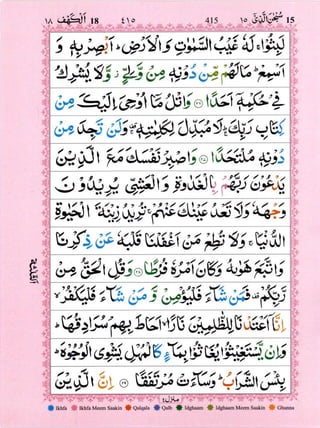 ١٨ اَلْكَهْف 18 ٤١٥ 415 سُبْحٰنَ الَّذِيْ ١٥ 15
لَبِثُوْا ۚ لَهٗ غَيْبُ السَّمٰوٰتِ وَالْاَرْضِ ؕ اَبْصِرْ بِهٖ وَ
اَسْمِعْ ؕ مَا لَهُمْ مِّنْ دُوْنِهٖ مِنْ وَّلِيٍّ ؗ وَّلَا يُشْرِكُ
فِيْ حُكْمِهٖۤ اَحَدًا ﴿۲۶﴾ وَاتْلُ مَاۤ اُوْحِيَ اِلَيْكَ مِنْ
كِتَابِ رَبِّكَ ۚ لَا مُبَدِّلَ لِكَلِمٰتِهٖ ۚ وَلَنْ تَجِدَ مِنْ
دُوْنِهٖ مُلْتَحَدًا ﴿۲۷﴾ وَاصْبِرْ نَفْسَكَ مَعَ الَّذِيْنَ
يَدْعُوْنَ رَبَّهُمْ بِالْغَدٰوةِ وَالْعَشِيِّ يُرِيْدُوْنَ
وَجْهَهٗ وَلَا تَعْدُ عَيْنٰكَ عَنْهُمْ ۚ تُرِيْدُ زِيْنَةَ الْحَيٰوةِ
الدُّنْيَا ۚ وَلَا تُطِعْ مَنْ اَغْفَلْنَا قَلْبَهٗ عَنْ ذِكْرِنَا
وَاتَّبَعَ هَوٰىهُ وَكَانَ اَمْرُهٗ فُرُطًا ﴿۲۸﴾ وَقُلِ الْحَقُّ مِنْ
رَّبِّكُمْ ۟ فَمَنْ شَآءَ فَلْيُؤْمِنْ وَّمَنْ شَآءَ فَلْيَكْفُرْ ۙ
اِنَّاۤ اَعْتَدْنَا لِلظّٰلِمِيْنَ نَارًا ۙ اَحَاطَ بِهِمْ سُرَادِقُهَا ؕ
وَاِنْ يَّسْتَغِيْثُوْا يُغَاثُوْا بِمَآءٍ كَالْمُهْلِ يَشْوِي الْوُجُوْهَ ؕ
بِئْسَ الشَّرَابُ ؕ وَسَآءَتْ مُرْتَفَقًا ﴿۲۹﴾ اِنَّ الَّذِيْنَ
منزل ٤
Ikhfa Ikhfa Meem Saakin Qalqala Qalb Idgham Idgham Meem Saakin Ghunna